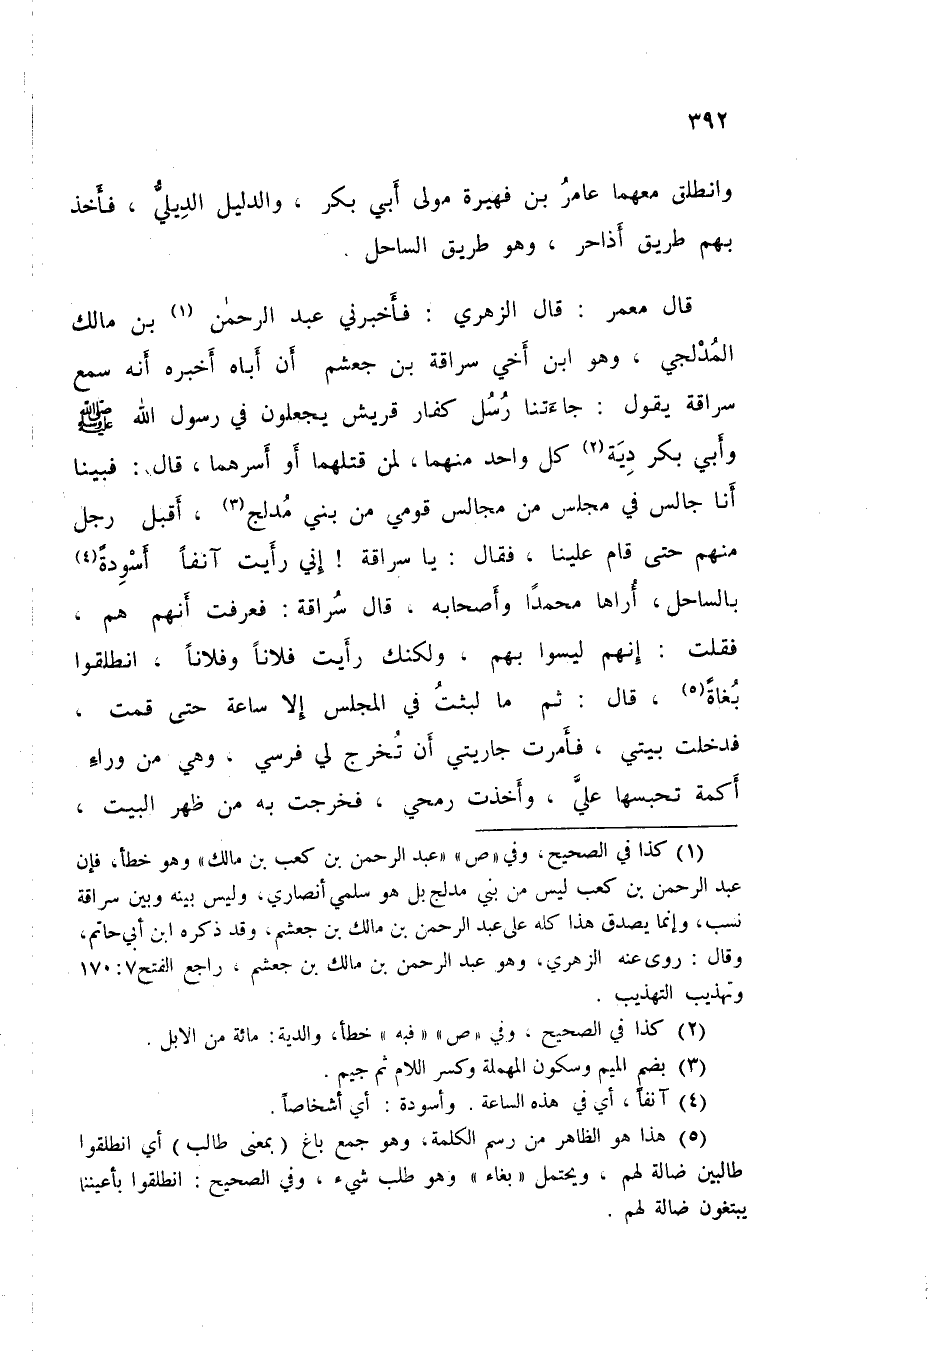 ٣٩٢
وانطلق معهما عامرُ بن فهيرة مولى أَبي بكر ، والدليل الدِيليُّ ، فأَخذ
بهم طريق أَذاحر ، وهو طريق الساحل .
قال معمر : قال الزهري : فأَخبرني عبد الرحمٰن (١) بن مالك
المُدْلجي ، وهو ابن أَخي سراقة بن جعشم أَن أَباه أَخبره أَنه سمع
سراقة يقول : جاءَتنا رُسُل كفار قريش يجعلون في رسول الله ﷺ
وأَبي بكر دِيَة(٢) كل واحد منهما، لمن قتلهما أَو أَسرهما ، قال : فبينا
أَنا جالس في مجلس من مجالس قومي من بني مُدلج(٣) ، أَقبل رجل
منهم حتى قام علينا ، فقال : يا سراقة ! إِني رأَيت آنفاً أَسْوِدةً(٤)
بالساحل، أُراها محمدًا وأَصحابه ، قال سُراقة : فعرفت أَنهم هم ،
فقلت : إِنهم ليسوا بهم ، ولكنك رأَيت فلاناً وفلاناً ، انطلقوا
بُغاةً(٥) ، قال : ثم ما لبثتُ في المجلس إِلا ساعة حتى قمت ،
فدخلت بيتي ، فأَمرت جاريتي أَن تُخرج لي فرسي ، وهي من وراءِ
أَكمة تحبسها عليَّ ، وأَخذت رمحي ، فخرجت به من ظهر البيت ،
(١) كذا في الصحيح، وفي «ص» «عبد الرحمن بن كعب بن مالك» وهو خطأ، فإن
عبد الرحمن بن كعب ليس من بني مدلج بل هو سلمي أنصاري، وليس بينه وبين سراقة
نسب، وإنما يصدق هذا كله على عبد الرحمن بن مالك بن جعشم، وقد ذكره ابن أبي حاتم،
وقال : روى عنه الزهري، وهو عبد الرحمن بن مالك بن جعشم ، راجع الفتح ٧: ١٧٠
وتهذيب التهذيب .
(٢) كذا في الصحيح ، وفي «ص» «فبه» خطأ، والدية: مائة من الابل .
(٣) بضم الميم وسكون المهملة وكسر اللام ثم جيم .
(٤) آنفاً ، أي في هذه الساعة . وأسودة : أي أشخاصاً .
(٥) هذا هو الظاهر من رسم الكلمة، وهو جمع باغ (بمعنى طالب) أي انطلقوا
طالبين ضالة لهم ، ويحتمل «بغاء» وهو طلب شيء ، وفي الصحيح : انطلقوا بأعيننا
يبتغون ضالة لهم .